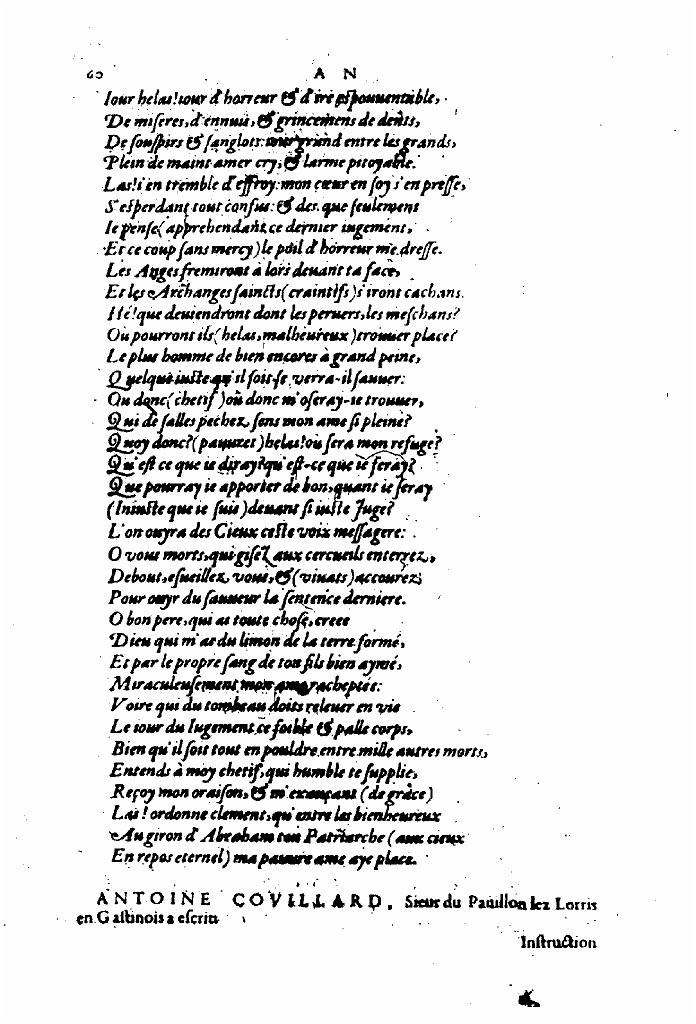 60 A N
Iour helas! iour d'horreur & d'ire espouuentable,
De miseres, d'ennuis, & grincemens de dents,
De souspirs & sanglots: iour grand entre les grands,
Plein de maint amer cry, & larme pitoyable.
Las! i'en tremble d'effroy: mon cœur en soy s'en presse,
S'esperdant tout confus: & des que seulement
Ie pense (apprehendant ce dernier iugement,
Et ce coup sans mercy) le poil d'horreur me dresse.
Les Anges fremiront à lors deuant ta face,
Et les Archanges saincts (craintifs) s'iront cachans.
Hé! que deuiendront dont les peruers, les meschans?
Où pourront ils (helas, malheureux) trouuer place?
Le plus homme de bien encores à grand peine,
Quelque iuste qu'il soit-se verra-il sauuer:
Ou donc (chetif) où donc m'oseray-ie trouuer,
Qui de salles pechez sens mon ame si pleine?
Quoy donc? (pauurez) helas! où sera mon refuge?
Qu'est ce que ie diray? qu'est-ce que ie feray?
Que pourray ie apporter de bon, quant ie seray
(Iniuste que ie suis) deuant si iuste Iuge?
L'on ouyra des Cieux ceste voix messagere:
O vous morts, qui gisez aux cercueils enterrez,
Debout, esueillez vous, & (viuats) accourez;
Pour ouyr du sauueur la sentence derniere.
O bon pere, qui as toute chose, creee
Dieu qui m'as du limon de la terre formé,
Et par le propre sang de ton fils bien aymé,
Miraculeusement mon ame racheptée:
Voire qui du tombeau doits releuer en vie
Le iour du Iugement ce foible & palle corps,
Bien qu'il soit tout en pouldre entre mille autres morts,
Entends à moy chetif, qui humble te supplie,
Reçoy mon oraison, & m'exauçant (de grâce)
Las! ordonne clement, qu'entre les bienheureux
Au giron d'Abraham ton Patriarche (aux cieux
En repos eternel) ma pauure ame aye place.
ANTOINE COVILLARD, Sieur du Pauillon lez Lorris
en Gastinois a escrit
Instruction